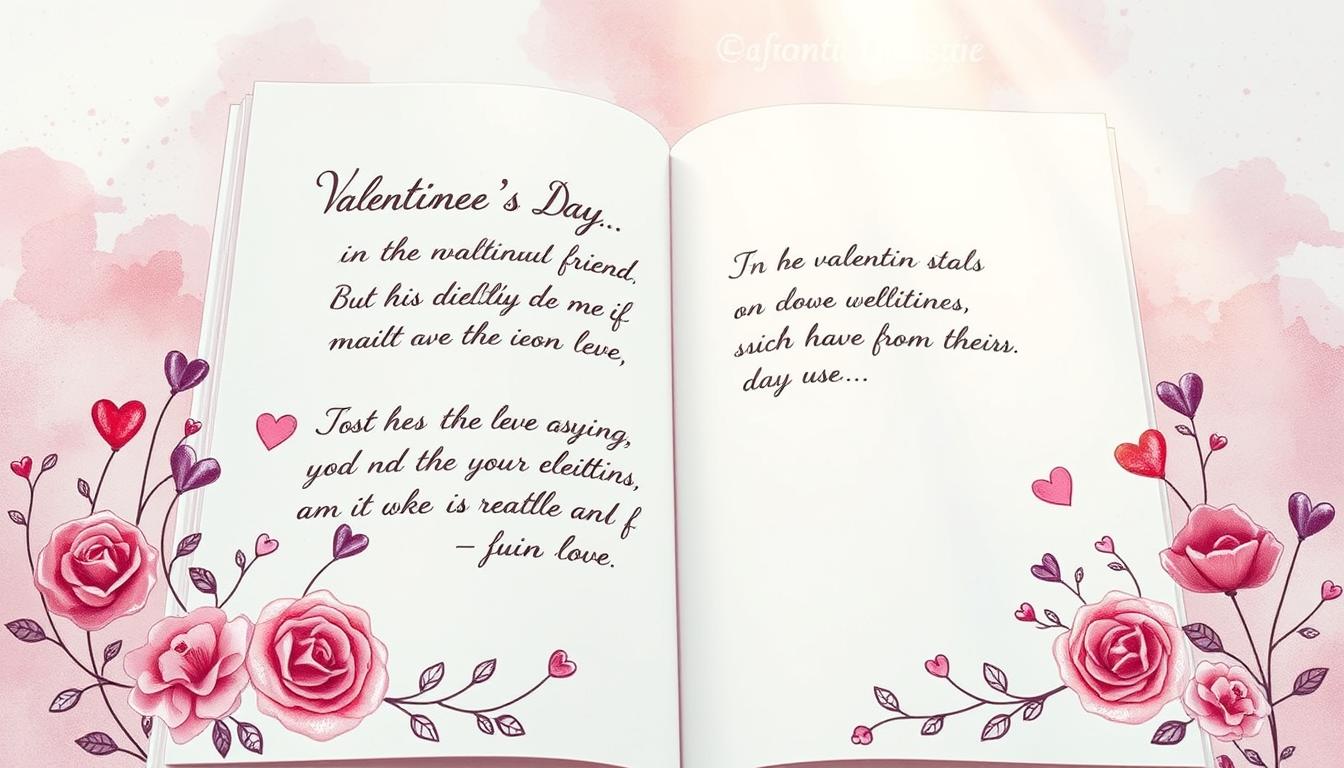 Valentimee's Day...
in the maltinuul friend,
But his de me if
mailt ave the ieon leve,
Jost hes the leve asying,
yod nd the your eleittins,
am it wke is reatlle anl f
– fuin love.
In he valentin stals
on dowe wellitines,
ssich have from theirs.
day use...